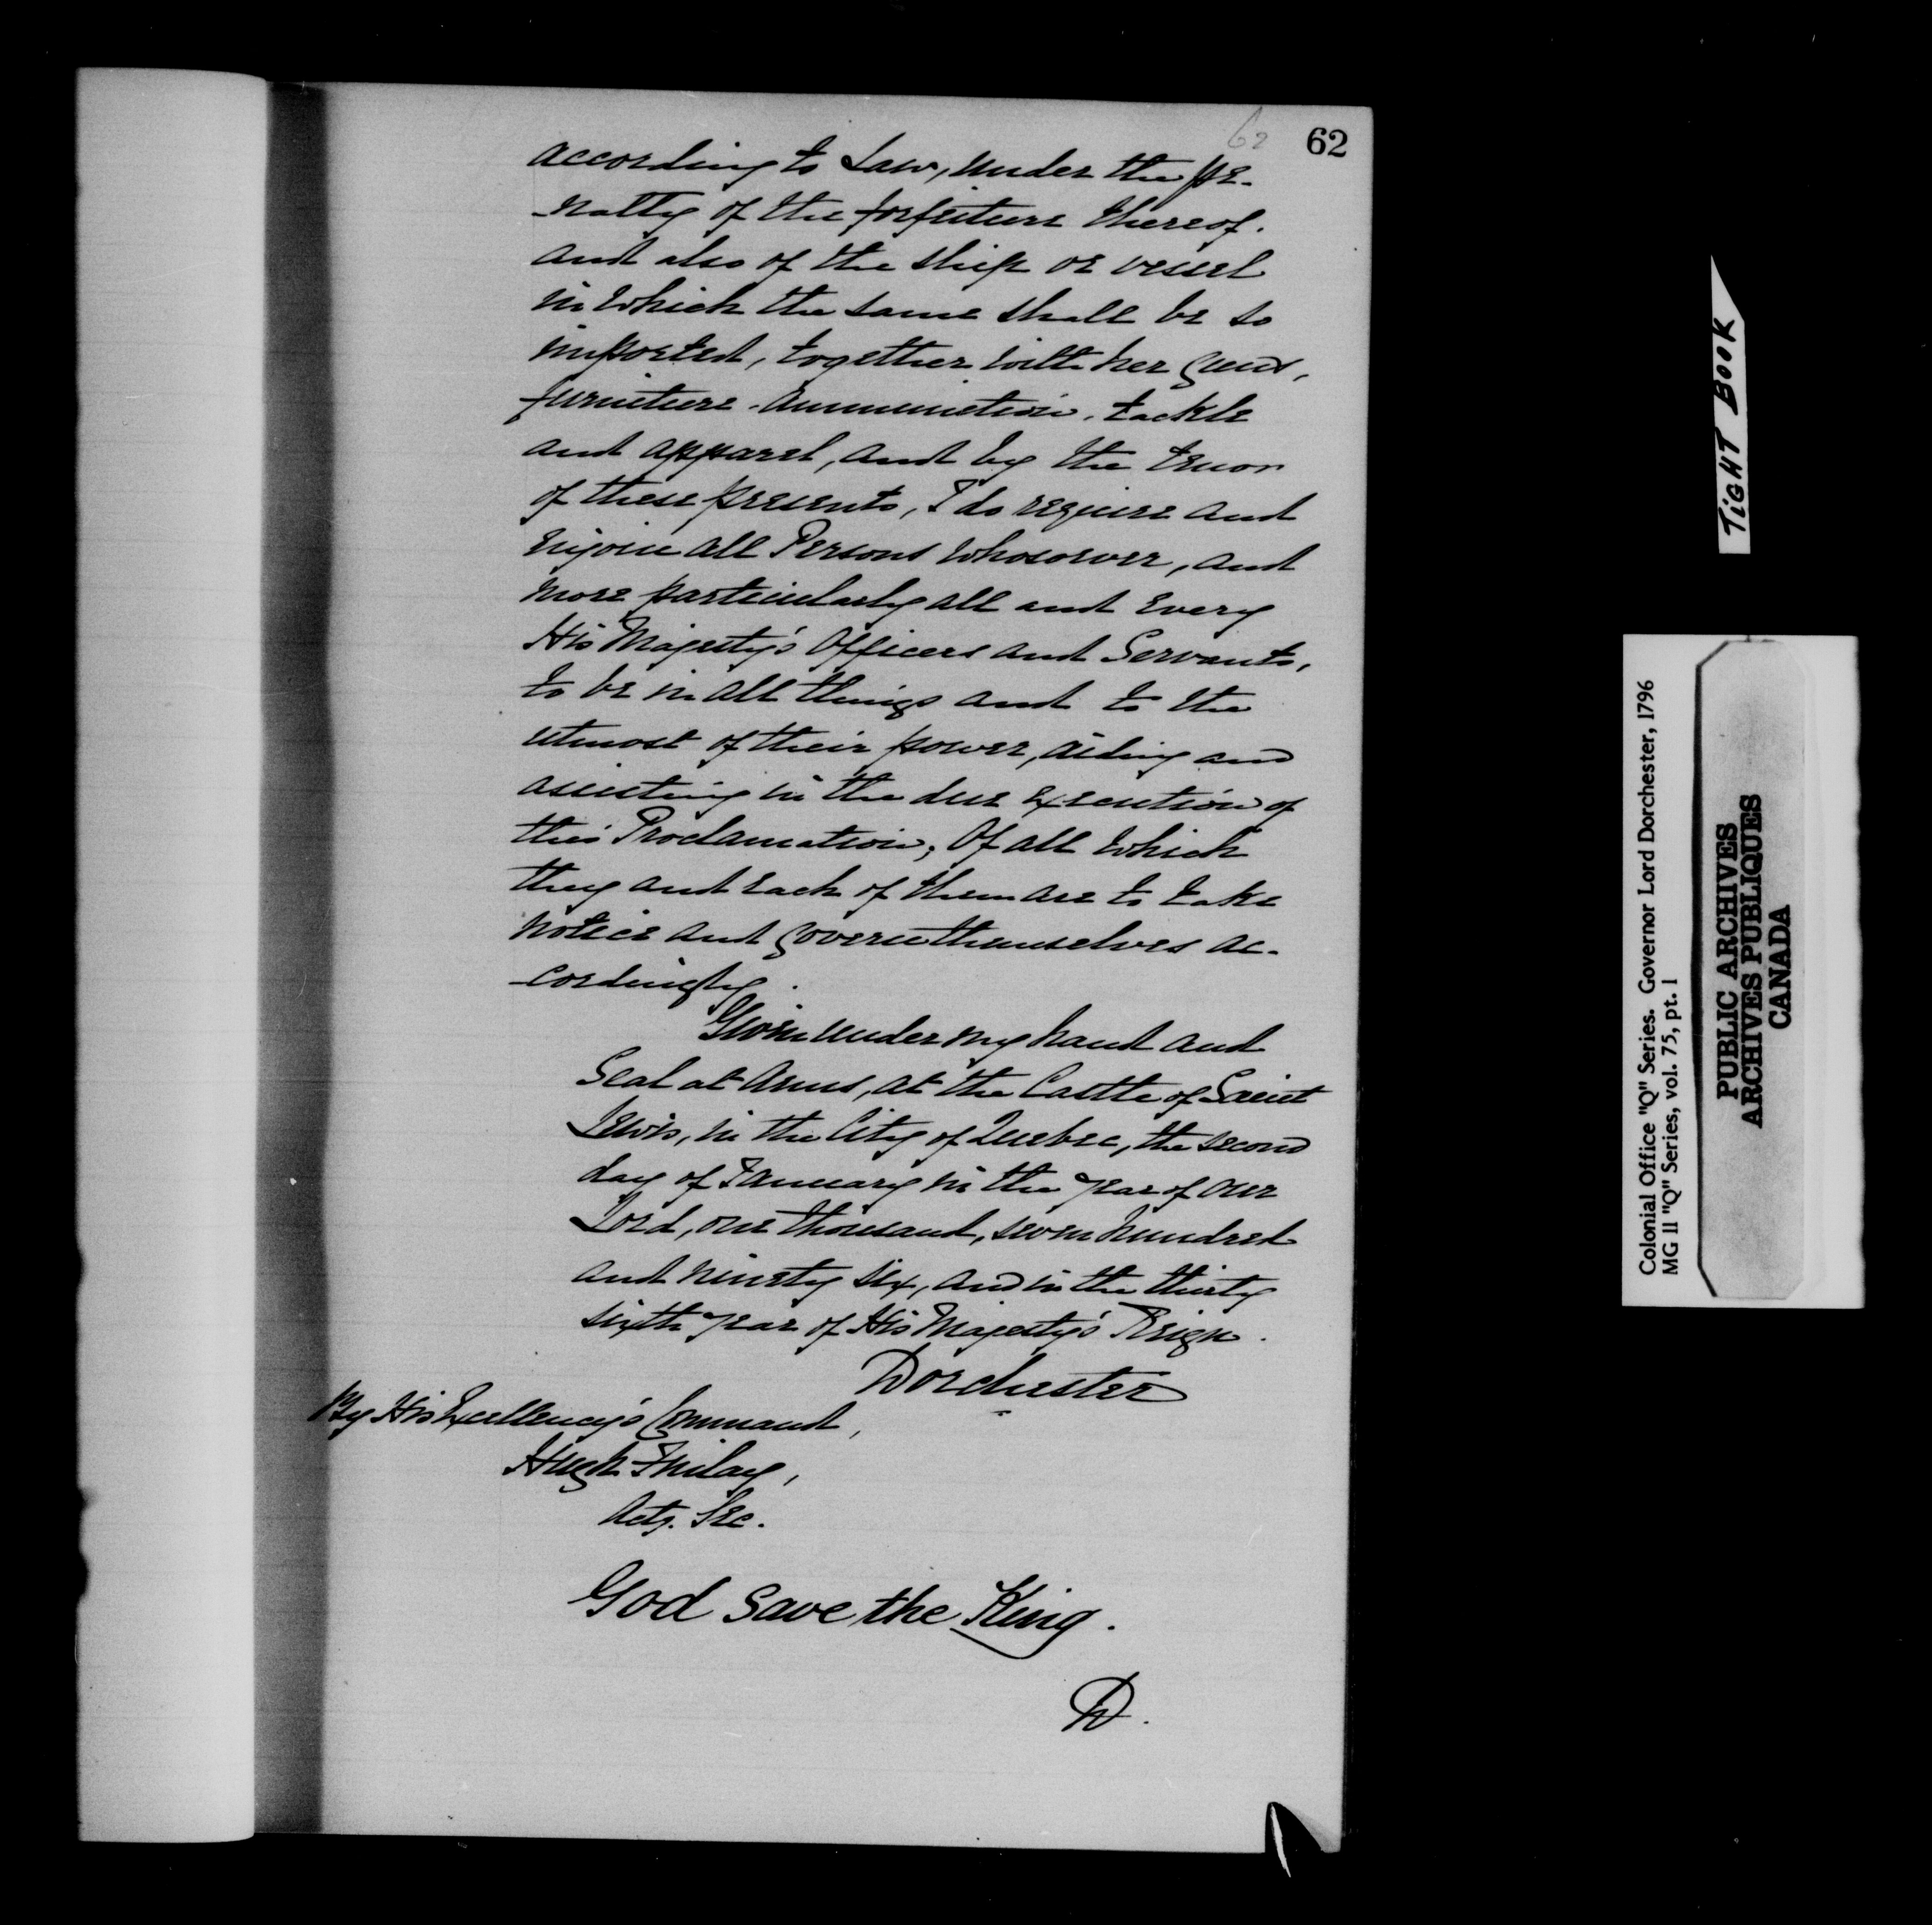 62
62
according to Law, under the pe-
-nalty of the forfeiture thereof.
and also of the ship or vessel
in which the same shall be so
imported, together with her guns,
furniture. ammunition. tackle
and apparel, and by the tenor
of these presents, I do require and
enjoin all Persons whosoever, and
more particularly all and every
His Majesty's Officers and Servants,
to be in all things and to the
utmost of their power, aiding and
assisting in the due execution of
this Proclamation; Of all which
they and each of them are to take
notice and govern themselves ac-
-cordingly.
Given under my hand and
Seal at Arms, at the Castle of Saint
Lewis, in the City of Quebec, the second
day of January in the year of our
Lord, one thousand, seven hundred
and ninety six, and in the thirty
sixth year of His Majesty's Reign.
Dorchester
By His Excellency's Command,
Hugh Finlay,
Actg. Sec.
God Save the King.
D.
TIGHT BOOK
Colonial Office "Q" Series. Governor Lord Dorchester, 1796
MG 11 "Q" Series, vol. 75, pt. 1
PUBLIC ARCHIVES
ARCHIVES PUBLIQUES
CANADA